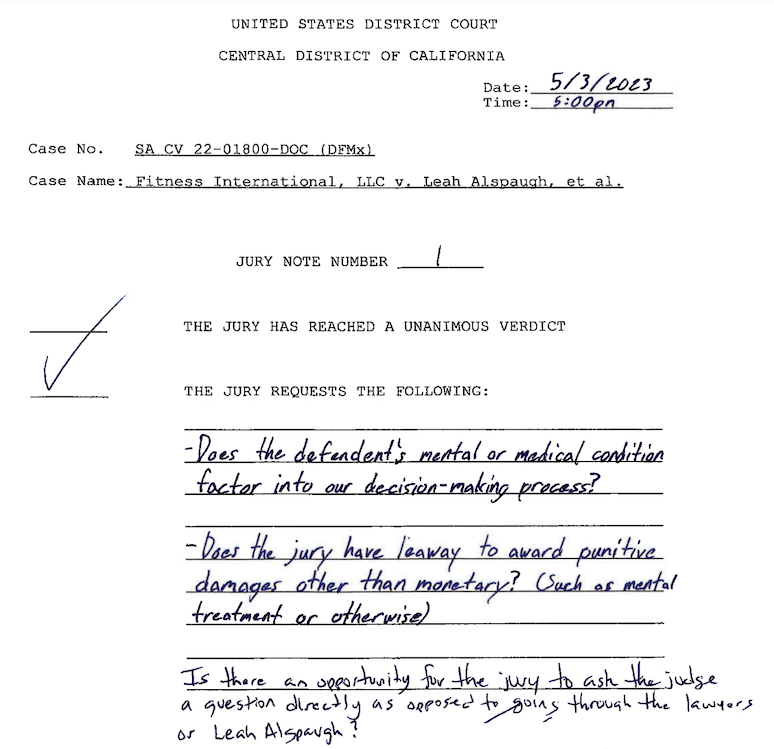 UNITED STATES DISTRICT COURT
CENTRAL DISTRICT OF CALIFORNIA
Date: 5/3/2023
Time: 5:00pm
Case No. SA CV 22-01800-DOC (DFMx)
Case Name: Fitness International, LLC v. Leah Alspaugh, et al.
JURY NOTE NUMBER 1
THE JURY HAS REACHED A UNANIMOUS VERDICT
THE JURY REQUESTS THE FOLLOWING:
-Does the defendent's mental or medical condition
factor into our decision-making process?
-Does the jury have leaway to award punitive
damages other than monetary? (Such as mental
treatment or otherwise)
Is there an opportunity for the jury to ask the judge
a question directly as opposed to going through the lawyers
or Leah Alspaugh?